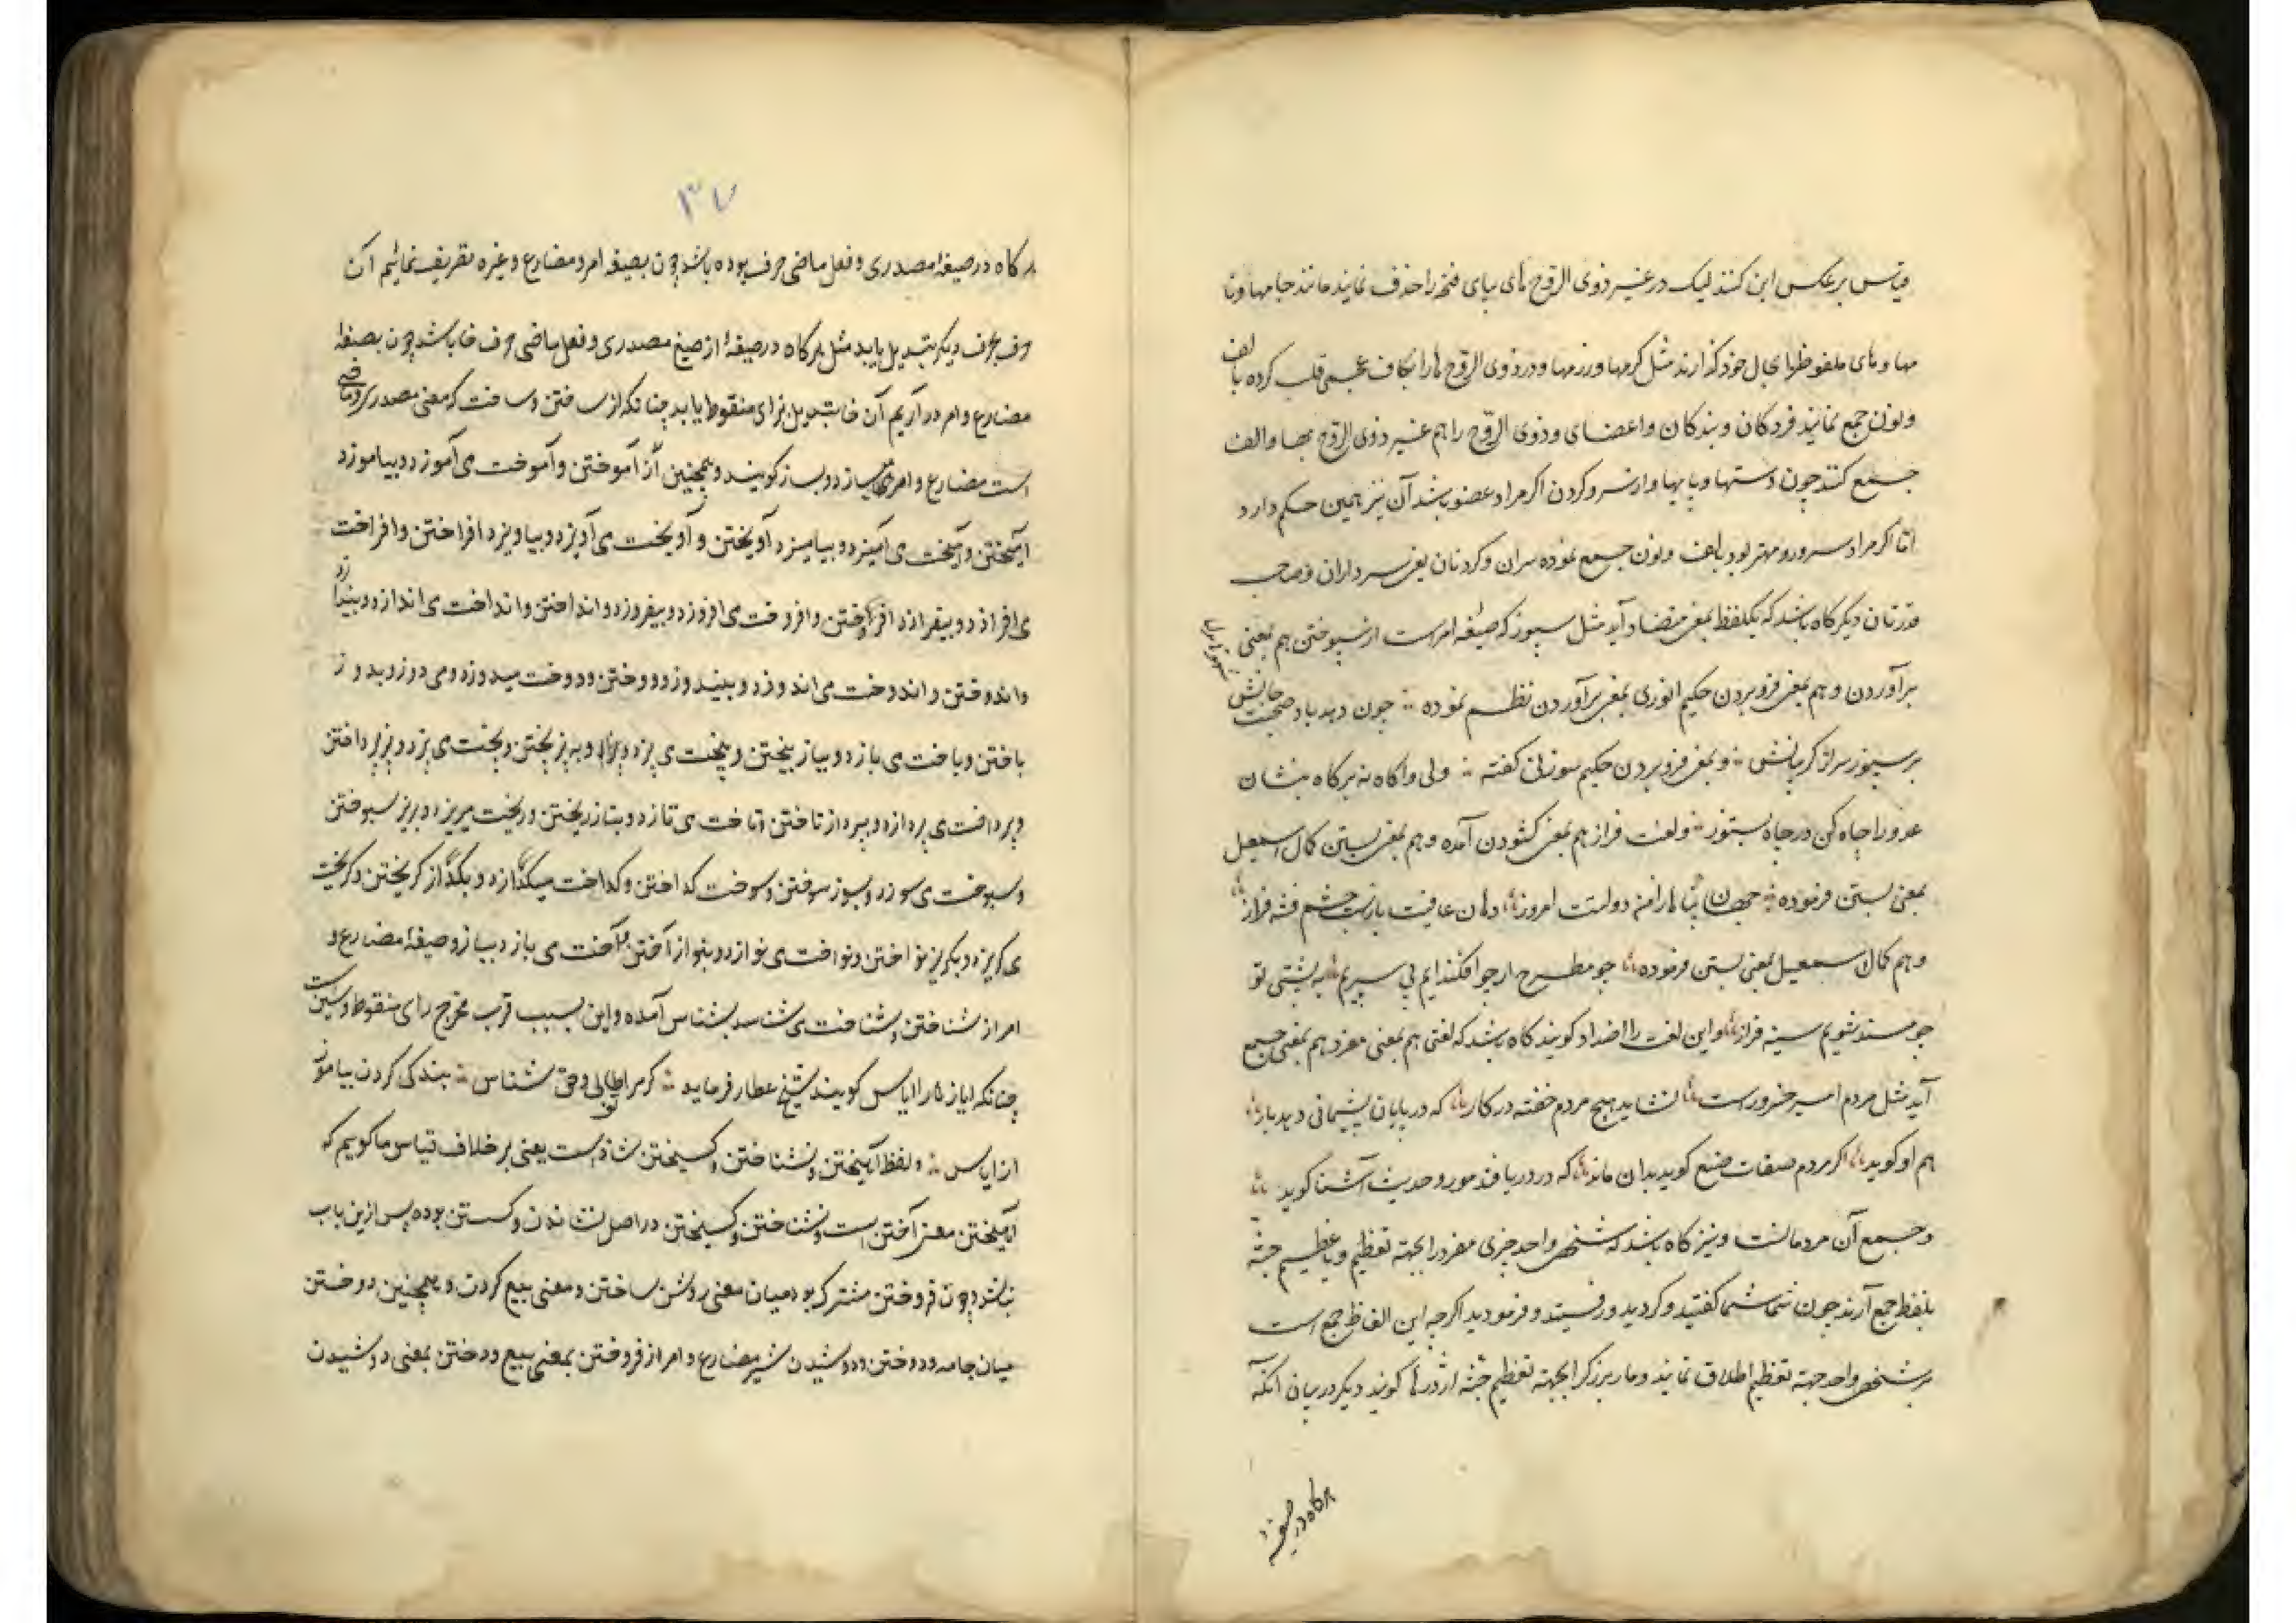 قیاس برعکس این کنند لیک در غیر ذوی الروح های بیای فتحه را حذف نمایند مانند جامها و نا
مها و های ملفوظ را بحال خود گذارند مثل گرهها و زرهها و در ذوی الروح ها را بکاف عجمی قلب کرده بالف
و نون جمع نمایند فردکان و بندکان و اعضای و ذوی الروح را هم غیر ذوی الروح بها و الف
جمع کنند چون دستها و پایها و از سر و کردن اکر مراد عضو باشد آن نیز همین حکم دارد
اما اکر مراد سرور و مهتر بود بالف و نون جمع نموده سران و کردنان یعنی سرداران و صاحب
قدرتان دیکر کاه باشد که یکلفظ بمعنی متضاد آید مثل سپوز که صیغه امر است از سپوختن هم بمعنی
برآوردن و هم بمعنی فرو بردن حکیم انوری بمعنی برآوردن نظم نموده چون دهد باد صبحت جانش
بر سپوز سر از کریبانش و بمعنی فرو بردن حکیم سوزنی کفته ولی واکاه نه بر کاه بنشان
عدو را چاه کن در چاه بسپوز و لغت فراز هم بمعنی کشودن آمده و هم بمعنی بستن کمال اسمعیل
بمعنی بستن فرموده جهان پناها از امن دولتت امروز دهان عافیت باز است چشم فتنه فراز
و هم کمال اسمعیل بمعنی بستن فرموده چو مطرح ار چو افکنده ایم پی سپریم به پشتی تو
چو مسند شویم سینه فراز و این لغت را اضداد کویند کاه باشد که لغتی هم بمعنی مفرد هم بمعنی جمع
آید مثل مردم امیر خسرو راست نشاید هیچ مردم خفته در کار که در پایان پشیمانی دهد بار
هم او کوید اکر مردم صفات صنع کوید بدان ماند که در دریا فتد مور و حدیث آشنا کوید
و جمع آن مردمانست و نیز کاه باشد که شخص واحد چیزی مفرد را بجهته تعظیم و یا عظیم جثه
بلفظ جمع آرند چون شما شما کفتید و کردید و رفتید و فرمودید اکرچه این الفاظ جمع است
بر شخص واحد جهته تعظیم اطلاق نمایند و مار بزرک را بجهته تعظیم جثه اژدرها کویند دیکر در بیان آنکه
هرکاه در صیغه
۳۷
هر کاه در صیغه مصدری و فعل ماضی حرف بوده باشد چون بصیغه امر و مضارع و غیره تصریف نمائیم آن
حرف بحرف دیکر تبدیل یابد مثل هرکاه در صیغهٔ از صیغ مصدری و فعل ماضی حرف خا باشد چون بصیغهٔ
مضارع و امر در آریم آن خا تبدیل بزای منقوط یابد چنانکه از ساختن و ساخت که معنی مصدری و ماضی
است مضارع و امر می سازد و بساز کویند و همچنین از آموختن و آموخت می آموزد و بیاموزد
آمیختن و آمیخت می آمیزد و بیامیزد آویختن و آویخت می آویزد و بیاویزد افراختن و افراخت
می افرازد و بیفرازد افروختن و افروخت می افروزد و بیفروزد و انداختن و انداخت می اندازد و بیندازد
و اندوختن و اندوخت می اندوزد و بیندوزد و دوختن و دوخت میدوزد و می دوزد و بدوز
باختن و باخت می بازد و بباز بیختن و بیخت می بیزد و به بیز پختن و پخت می پزد و بپز پرداختن
و پرداخت می پردازد و بپرداز تاختن و تاخت می تازد و بتاز ریختن و ریخت میریزد و بریز سپوختن
و سپوخت می سپوزد و بسپوز سوختن و سوخت کداختن و کداخت میکدازد و بکداز کریختن و کریخت
می کریزد و بکریز نواختن و نواخت می نوازد و بنواز آختن و آخت می یازد و بیاز و صیغهٔ مضارع و
امر از شناختن و شناخت می شناسد بشناس آمده و این بسبب قرب مخرج زای منقوط و سین است
چنانکه ایاز را ایاس کویند شیخ عطار فرماید کر مرا طالبی و حق شناس بندکی کردن بیاموز
از ایاس و لفظ آمیختن و نشناختن و کسیختن شاذ است یعنی برخلاف قیاس ما کوییم که
آمیختن معنی آختن است و نشناختن و کسیختن در اصل نشاندن و کسستن بوده پس ازین باب
نباشد چون فروختن مشترک بود میان معنی روشن ساختن و معنی بیع کردن و همچنین دوختن
میان جامه و دوختن و دوشیدن شیر مضارع و امر از فروختن بمعنی بیع و دوختن بمعنی دوشیدن